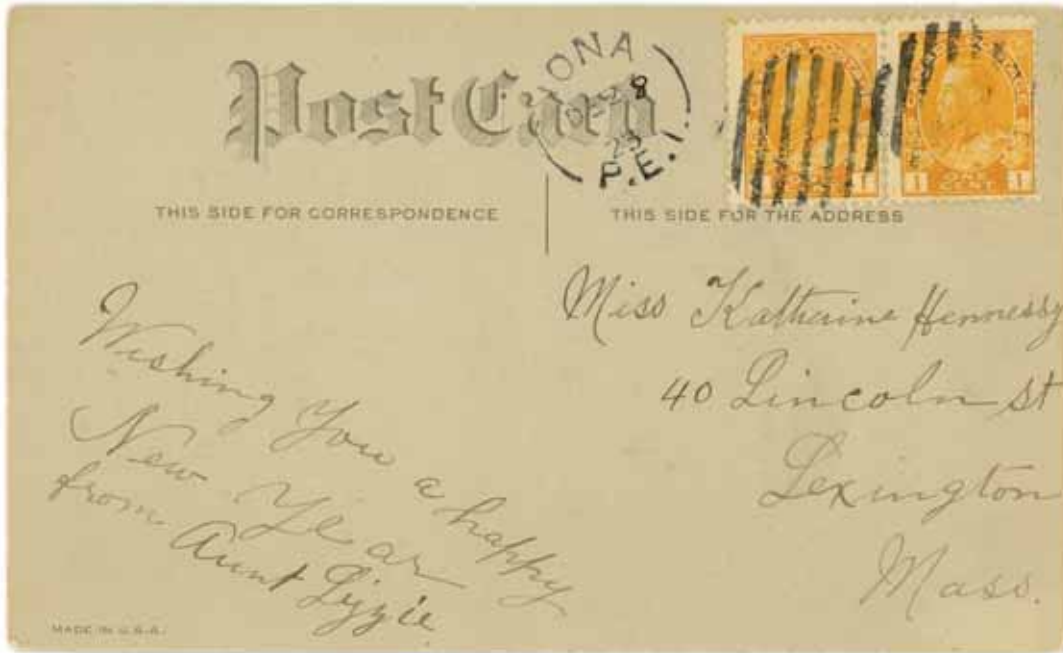 Post Card
IONA
DE 28
23
P.E.I.
1 CENT 1
THIS SIDE FOR CORRESPONDENCE
THIS SIDE FOR THE ADDRESS
Wishing You a happy
New Year
from Aunt Lizzie
Miss Katherine Hennessy
40 Lincoln St
Lexington
Mass.
MADE IN U.S.A.